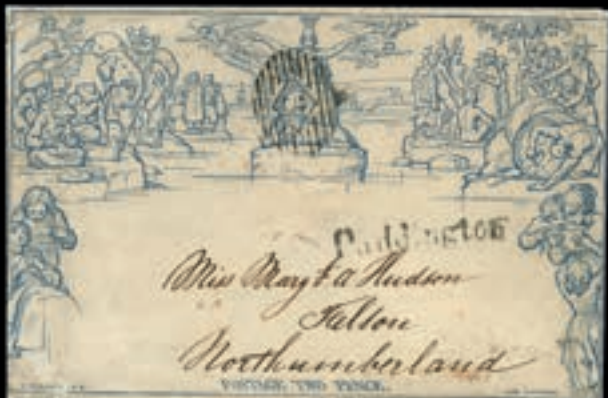 Paddington
Miss Mary F A Hudson
Felton
Northumberland
POSTAGE TWO PENCE.